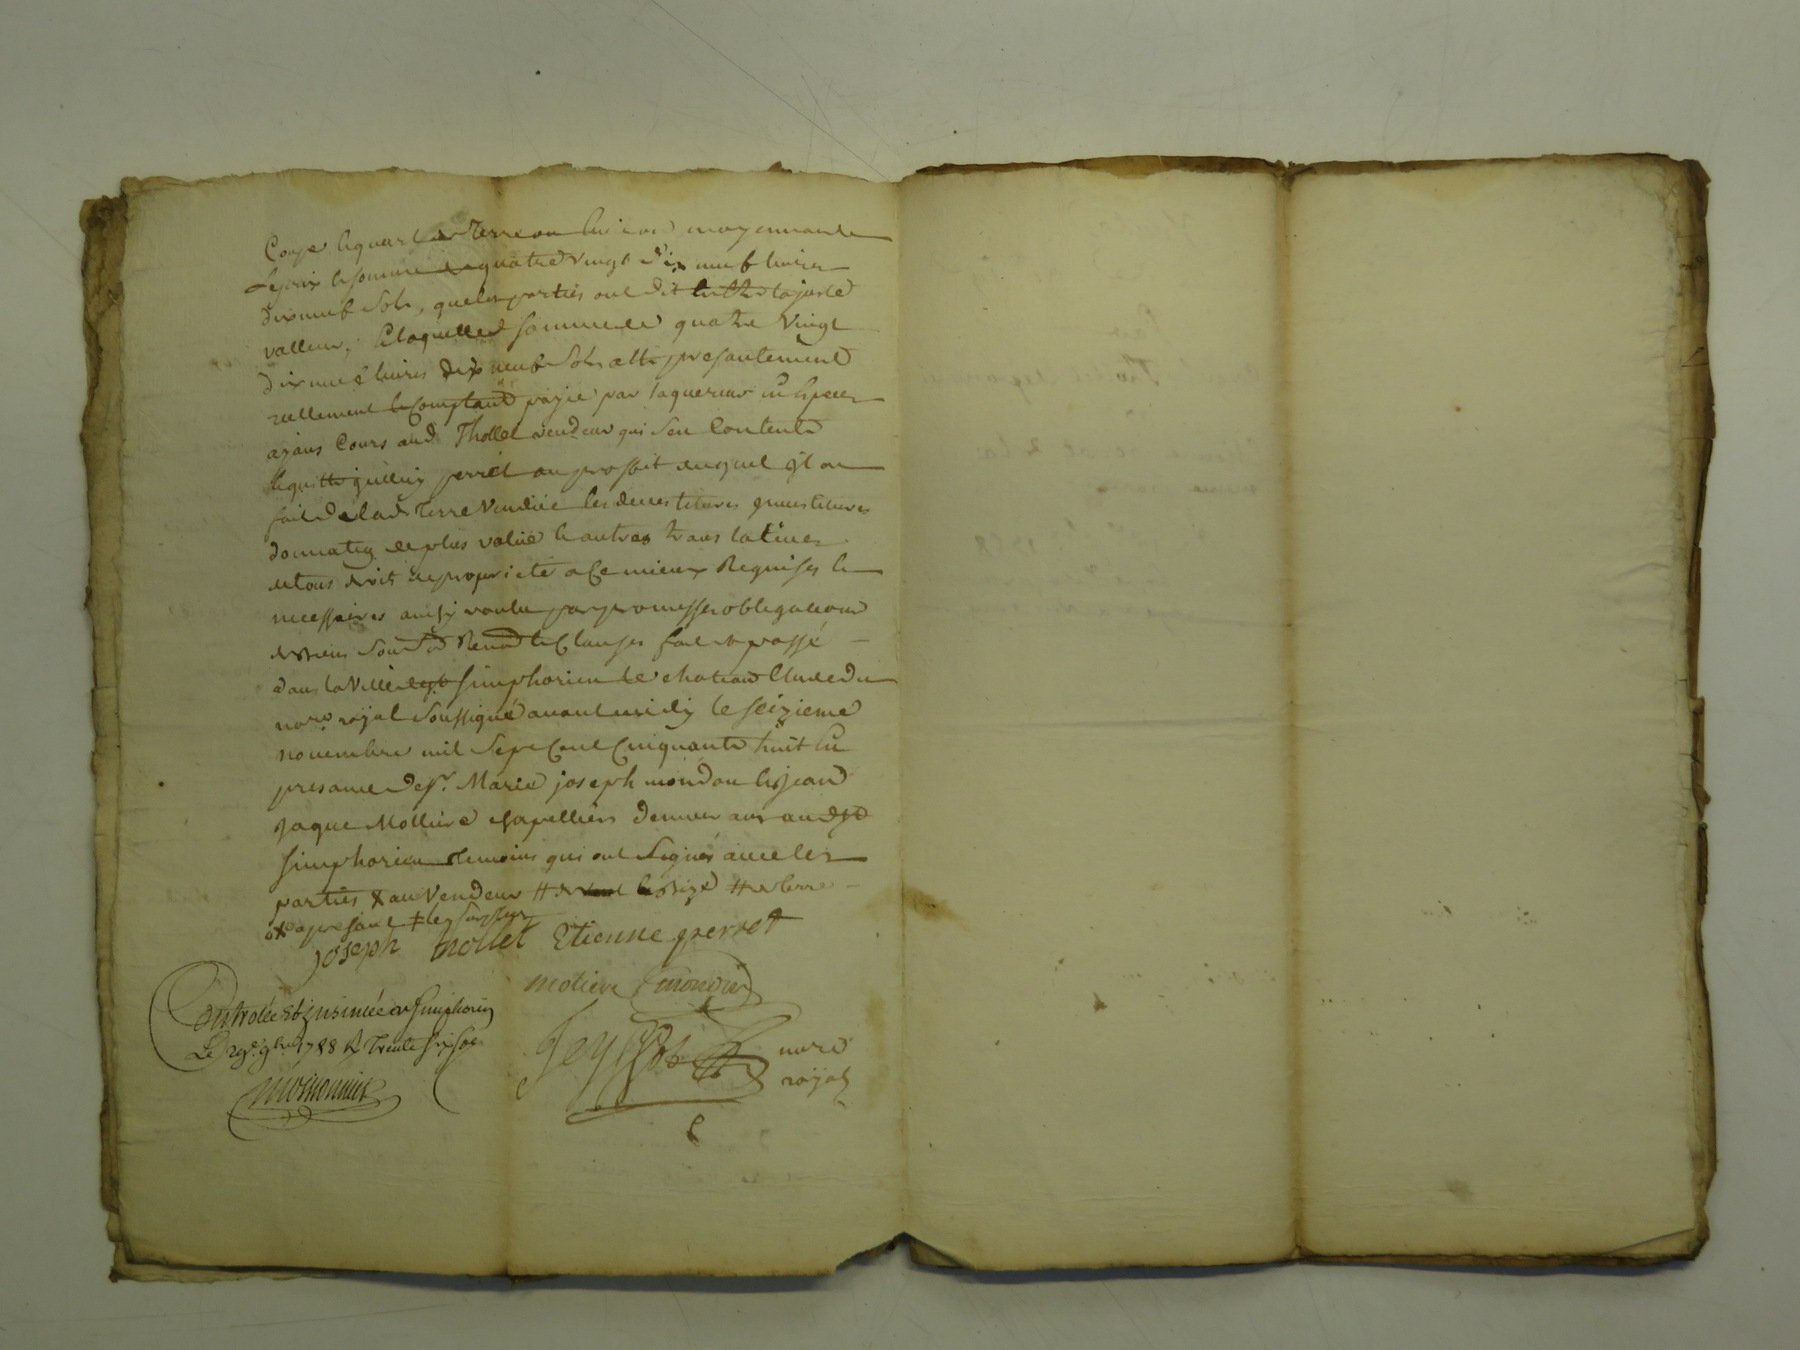 Coupe le quart de Terre ou
Le prix le somme de quatre vingt dix neuf livres
dix neuf Sols, que les parties ont dit la juste
valleur, Et laquelle somme de quatre vingt
dix neuf livres dix neuf Sols a été presantement
reellement Comptant payé par laquereur en Especes
ayans Cours aud. Thollet vendeur qui sen Contente
quitte perret au proffit duquel il a
fait de lad. Terre Vendue les devestitures investitures
donnation de plus value & autres translatives
de tous droit de propriete a ce mieux Requises &
necessaires ainsy voulu par promesse obligation
de biens Soumd. Renond. & Clauses fait & passé
dans la Ville de st simphorien le chateau Etude du
nore. royal Soussigné avant midy le seizieme
novembre mil Sept Cent Cinquante huit En
presance de sr. Marie joseph mondon & jean
jaque Molliere chapelliers demeurans aud. st
simphorien temoins qui ont Signés avec les
parties au Vendeur
Joseph thollet Etienne perret
moliere mondon
Controlée Et insinuée a st simphorien
Le 29e. 9bre 1758 R Trente six sols
nore
royal